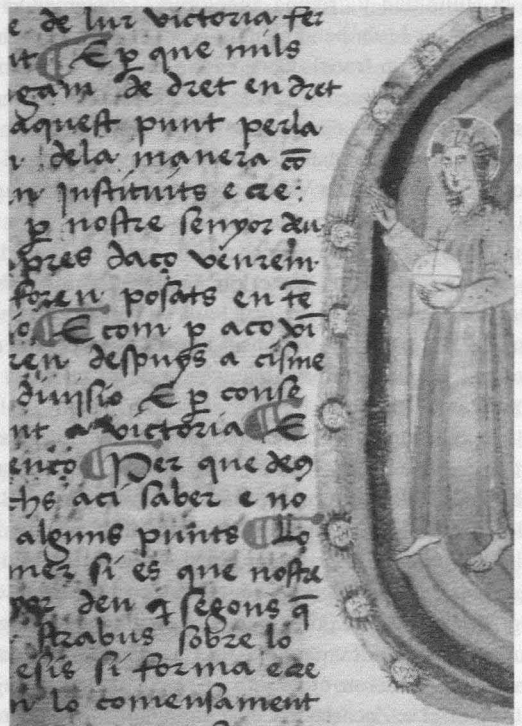 e de lur victoria fer
nt E ꝑ que mils
gam de dret en dret
aquest punt perla
dela manera cō
n instituits e cre:
ꝑ nostre senyor deu
pres daço venrem
foren posats en tē
io E com ꝑ aco vī
ren despuys a cisme
diuisio E ꝑ conse
nt a victoria E
ento Per que deꝯ
chs aci saber e no
alguns punts Lo
mer si es que nostre
yor deu segons q̄
strabus sobre lo
esis si forma e cre
n lo comensament